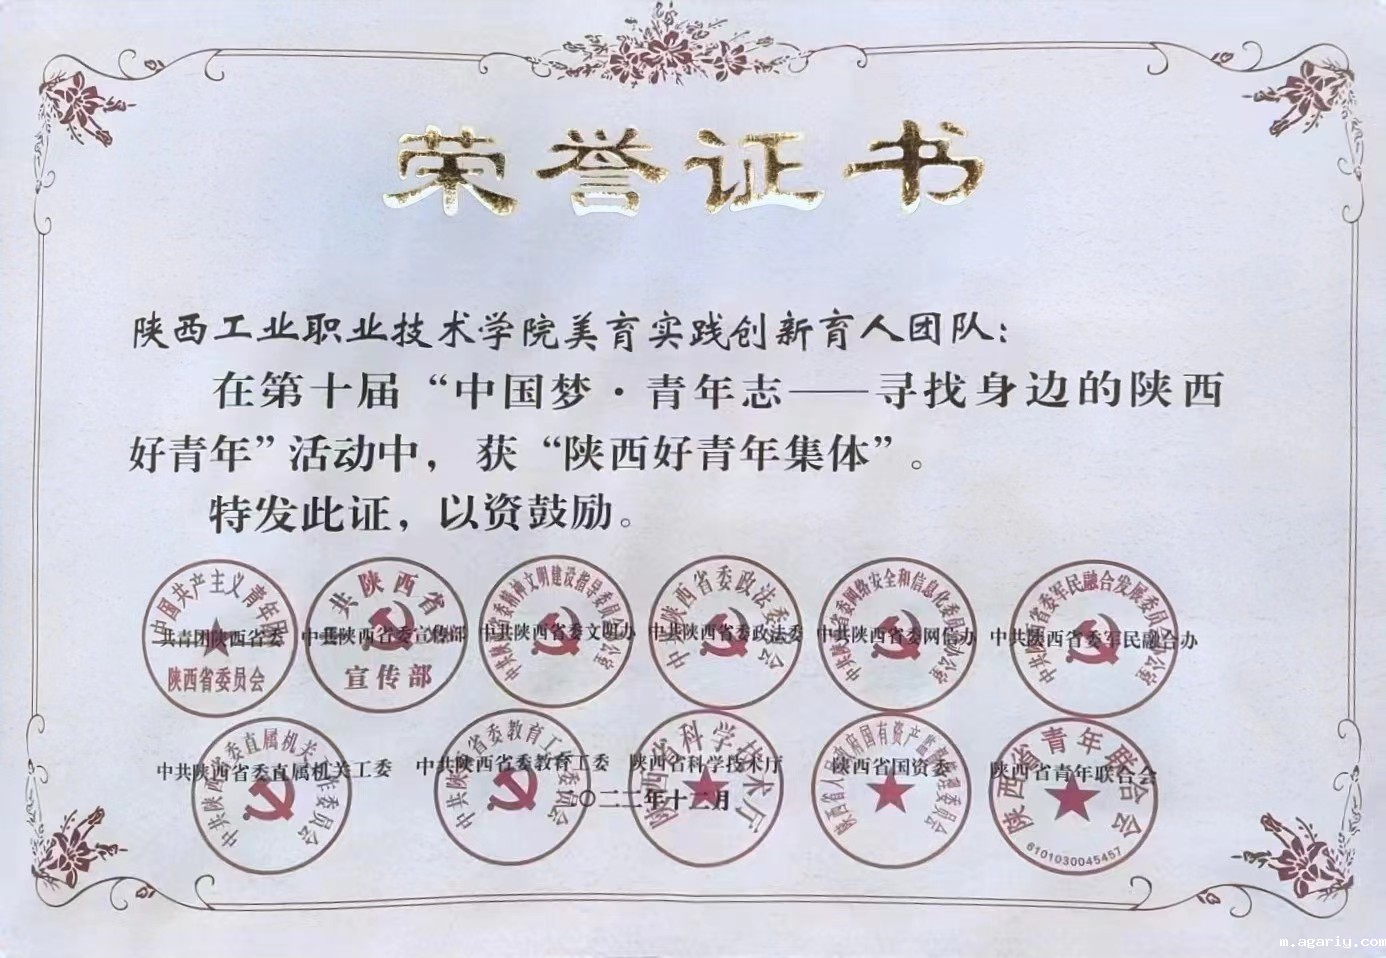 荣誉证书
陕西工业职业技术学院美育实践创新育人团队：
在第十届“中国梦·青年志——寻找身边的陕西
好青年”活动中，获“陕西好青年集体”。
特发此证，以资鼓励。
共青团陕西省委 中共陕西省委宣传部 中共陕西省委文明办 中共陕西省委政法委 中共陕西省委网信办 中共陕西省委军民融合办
中国共产主义青年团
陕西省委员会
共陕西省
宣传部
中共陕西省委政法委员会
中共陕西省委网络安全和信息化委员会办公室
中共陕西省委军民融合发展委员会办公室
中共陕西省委直属机关工委 中共陕西省委教育工委 陕西省科学技术厅 陕西省国资委 陕西省青年联合会
二〇二二年十二月
中共陕西省委直属机关工作委员会
中共陕西省委教育工作委员会
陕西省科学技术厅
陕西省青年联合会
6101030045457
m.agariy.com